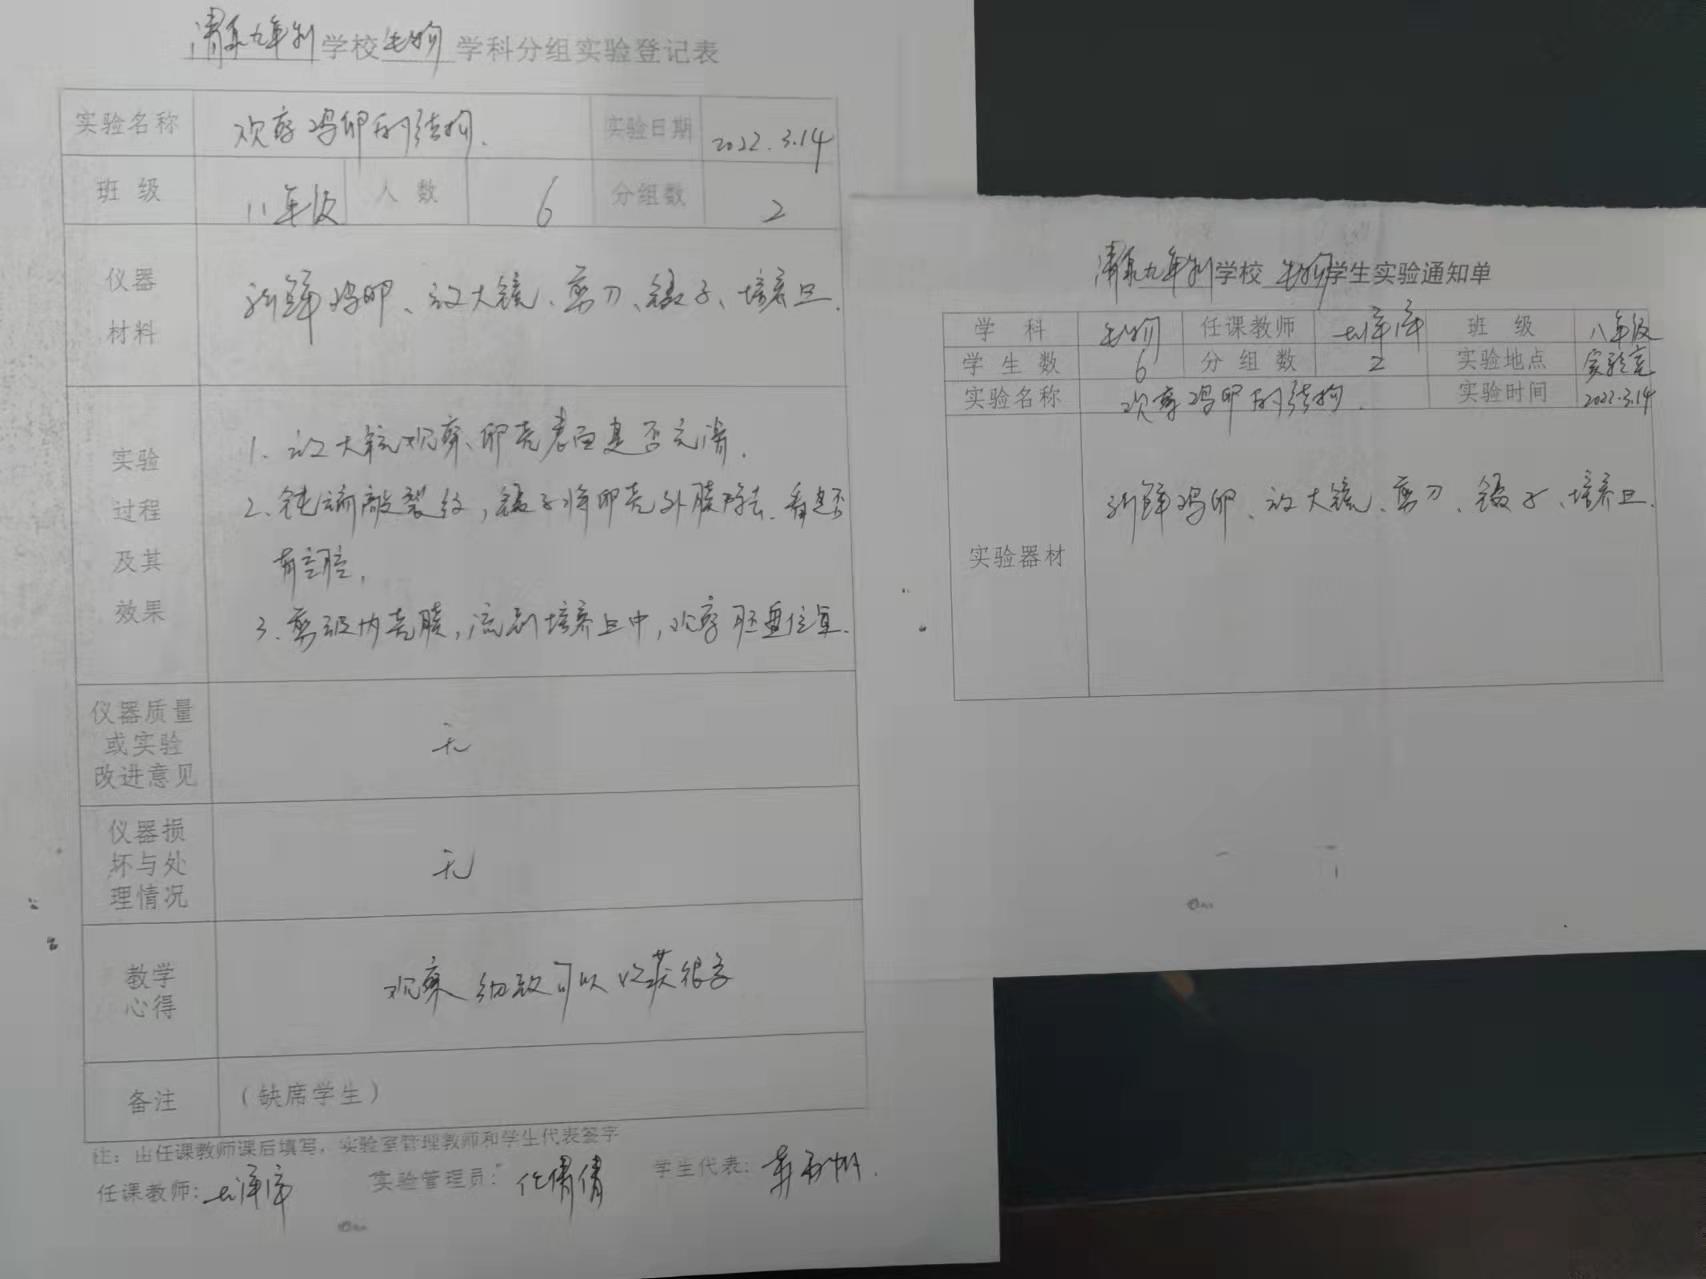 清泉九年制学校生物学科分组实验登记表
实验名称 观察鸡卵的结构. 实验日期 2022.3.14
班级 八年级 人数 6 分组数 2
仪器材料 新鲜鸡卵、放大镜、剪刀、镊子、培养皿.
实验过程及其效果
1. 放大镜观察、卵壳表面是否光滑.
2. 钝端敲裂纹,镊子将卵壳外膜除去.看是否
有空腔.
3. 剪破内壳膜,流到培养皿中,观察胚盘位置.
仪器质量或实验改进意见 无
仪器损坏与处理情况 无
教学心得 观察细致可以收获很多
备注 (缺席学生)
注:由任课教师课后填写,实验室管理教师和学生代表签字
任课教师: 实验管理员: 倩倩 学生代表:
清泉九年制学校 生物学生实验通知单
学科 生物 任课教师 班级 八年级
学生数 6 分组数 2 实验地点 实验室
实验名称 观察鸡卵的结构. 实验时间 2022.3.14
实验器材 新鲜鸡卵、放大镜、剪刀、镊子、培养皿.